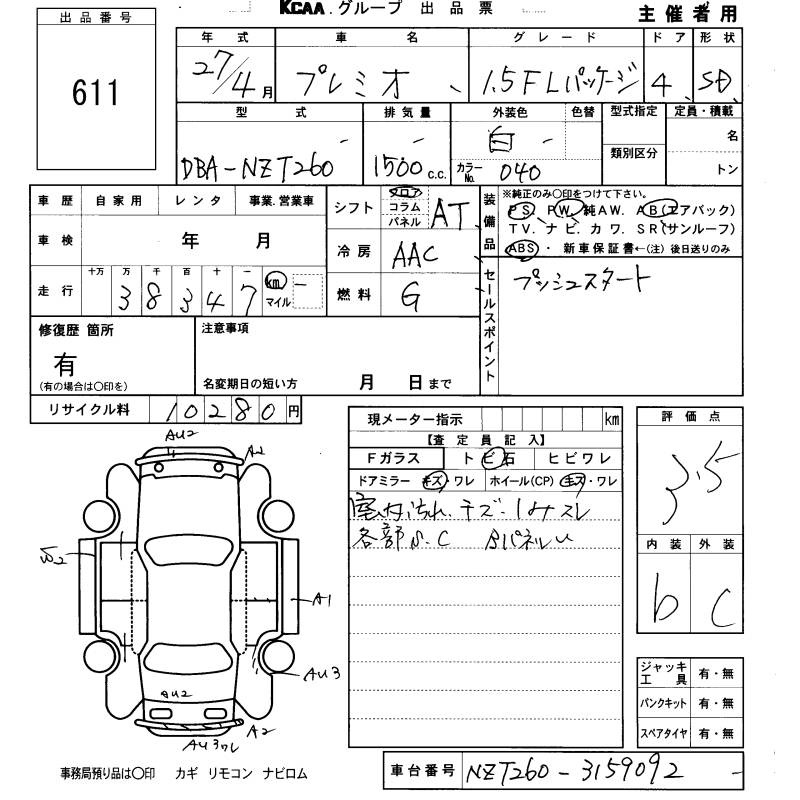 KCAA.グループ 出品票
主催者用
出品番号
611
年式 車名 グレード ドア 形状
27/4月 プレミオ 1.5FLパッケージ 4 SD
型式 排気量 外装色 色替 型式指定 定員・積載
DBA-NZT260 - 1500c.c. - 白 - 名
カラーNo. 040 類別区分 トン
車歴 自家用 レンタ 事業.営業車
車検 年 月
走行 十万 万 千 百 十 一
38347 km マイル -
シフト フロア コラム パネル AT
冷房 AAC
燃料 G
装備品
※純正のみ○印をつけて下さい。
PS. PW. 純AW. AB(エアバック)
TV. ナビ. カワ. SR(サンルーフ)
ABS・ 新車保証書←(注) 後日送りのみ
セールスポイント
プッシュスタート
修復歴 箇所
有
(有の場合は○印を)
注意事項
名変期日の短い方 月 日まで
リサイクル料 10280円
現メーター指示 km
【査定員記入】
Fガラス トビ石 ヒビワレ
ドアミラー キズ・ワレ ホイール(CP) キズ・ワレ
室内汚れ.キズ.シミスレ
各部S.C BパネルU
評価点
3.5
内装 外装
b C
ジャッキ工具 有・無
パンクキット 有・無
スペアタイヤ 有・無
AU2
A2
W2
A1
AU3
AU2
A2
AU3ワレ
事務局預り品は○印 カギ リモコン ナビロム
車台番号 NZT260-3159092 -